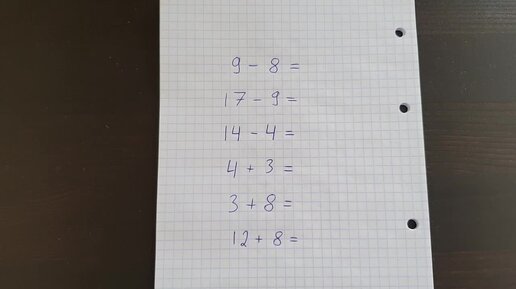 9 - 8 =
17 - 9 =
14 - 4 =
4 + 3 =
3 + 8 =
12 + 8 =